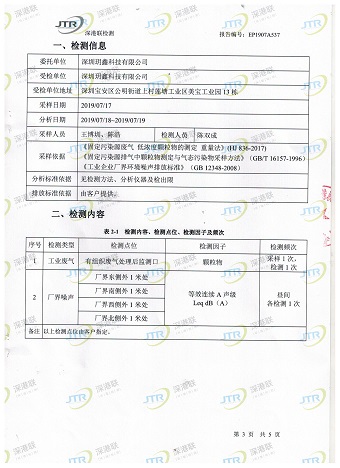 JTR
深港联检测
报告编号: EP1907A537
一、检测信息
委托单位 深圳玥鑫科技有限公司
受检单位 深圳玥鑫科技有限公司
受检单位地址 深圳宝安区公明街道上村莲塘工业区美宝工业园 13 栋
采样日期 2019/07/17
分析日期 2019/07/18~2019/07/19
采样人员 王博圳、陈浩 检测人员 陈双成
采样依据 《固定污染源废气 低浓度颗粒物的测定 重量法》(HJ 836-2017)
《固定污染源排气中颗粒物测定与气态污染物采样方法》(GB/T 16157-1996)
《工业企业厂界环境噪声排放标准》(GB 12348-2008)
分析标准依据 见检测方法、分析仪器及检出限
排放标准依据 由客户提供。
二、检测内容
表 2-1 检测内容、检测点位、检测因子及频次
序号 检测类型 检测点位 检测因子 检测频次
1 工业废气 有组织废气处理后监测口 颗粒物 采样 1 次,
检测 1 次
2 厂界噪声 厂界东侧外 1 米处 等效连续 A 声级
Leq dB（A） 昼间
各检测 1 次
厂界南侧外 1 米处
厂界西侧外 1 米处
厂界北侧外 1 米处
备注 以上检测点位由客户指定。
第 3 页 共 5 页